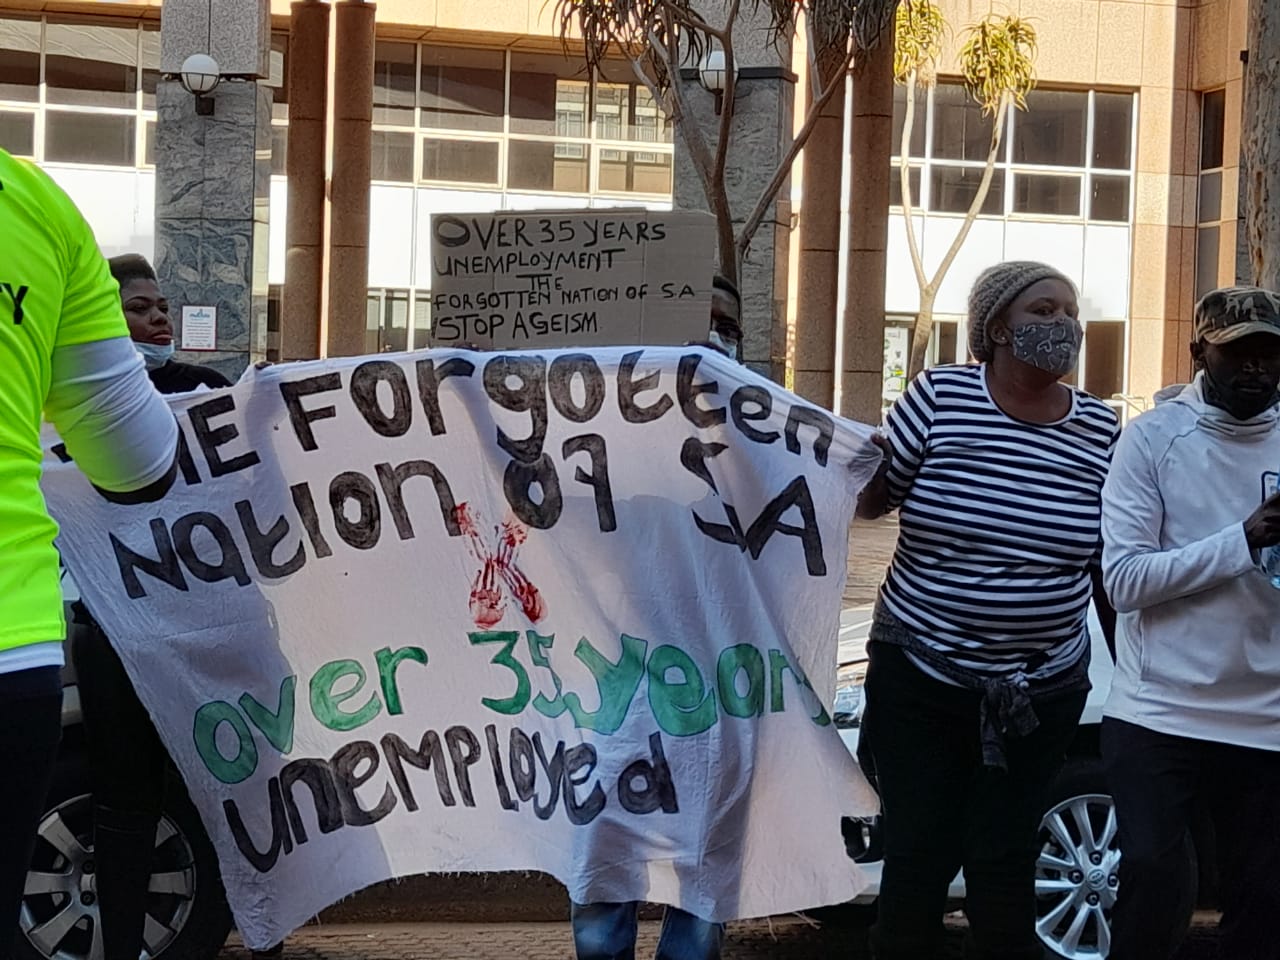 OVER 35 YEARS
UNEMPLOYMENT
THE
FORGOTTEN NATION OF SA
STOP AGEISM
Forgotten
Nation of SA
X
over 35 years
unemployed